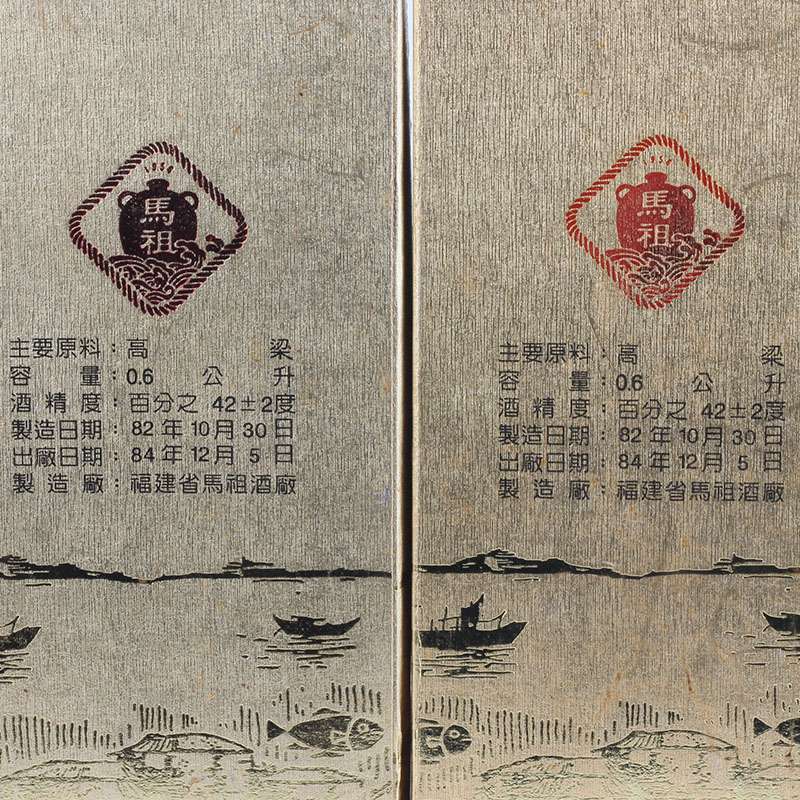 1956
馬祖
主要原料：高粱
容量：0.6公升
酒精度：百分之 42±2度
製造日期：82年10月30日
出廠日期：84年12月5日
製造廠：福建省馬祖酒廠
1956
馬祖
主要原料：高粱
容量：0.6公升
酒精度：百分之 42±2度
製造日期：82年10月30日
出廠日期：84年12月5日
製造廠：福建省馬祖酒廠